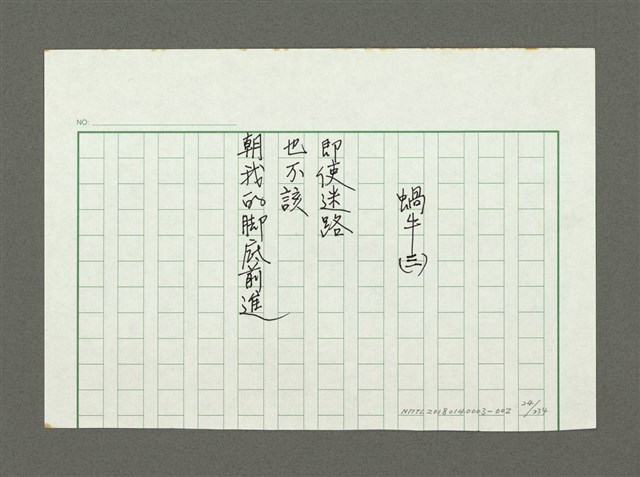 NO:
蝸牛(三)
即使迷路
也不該
朝我的腳底前進
NMTL20180140003-002
24/234